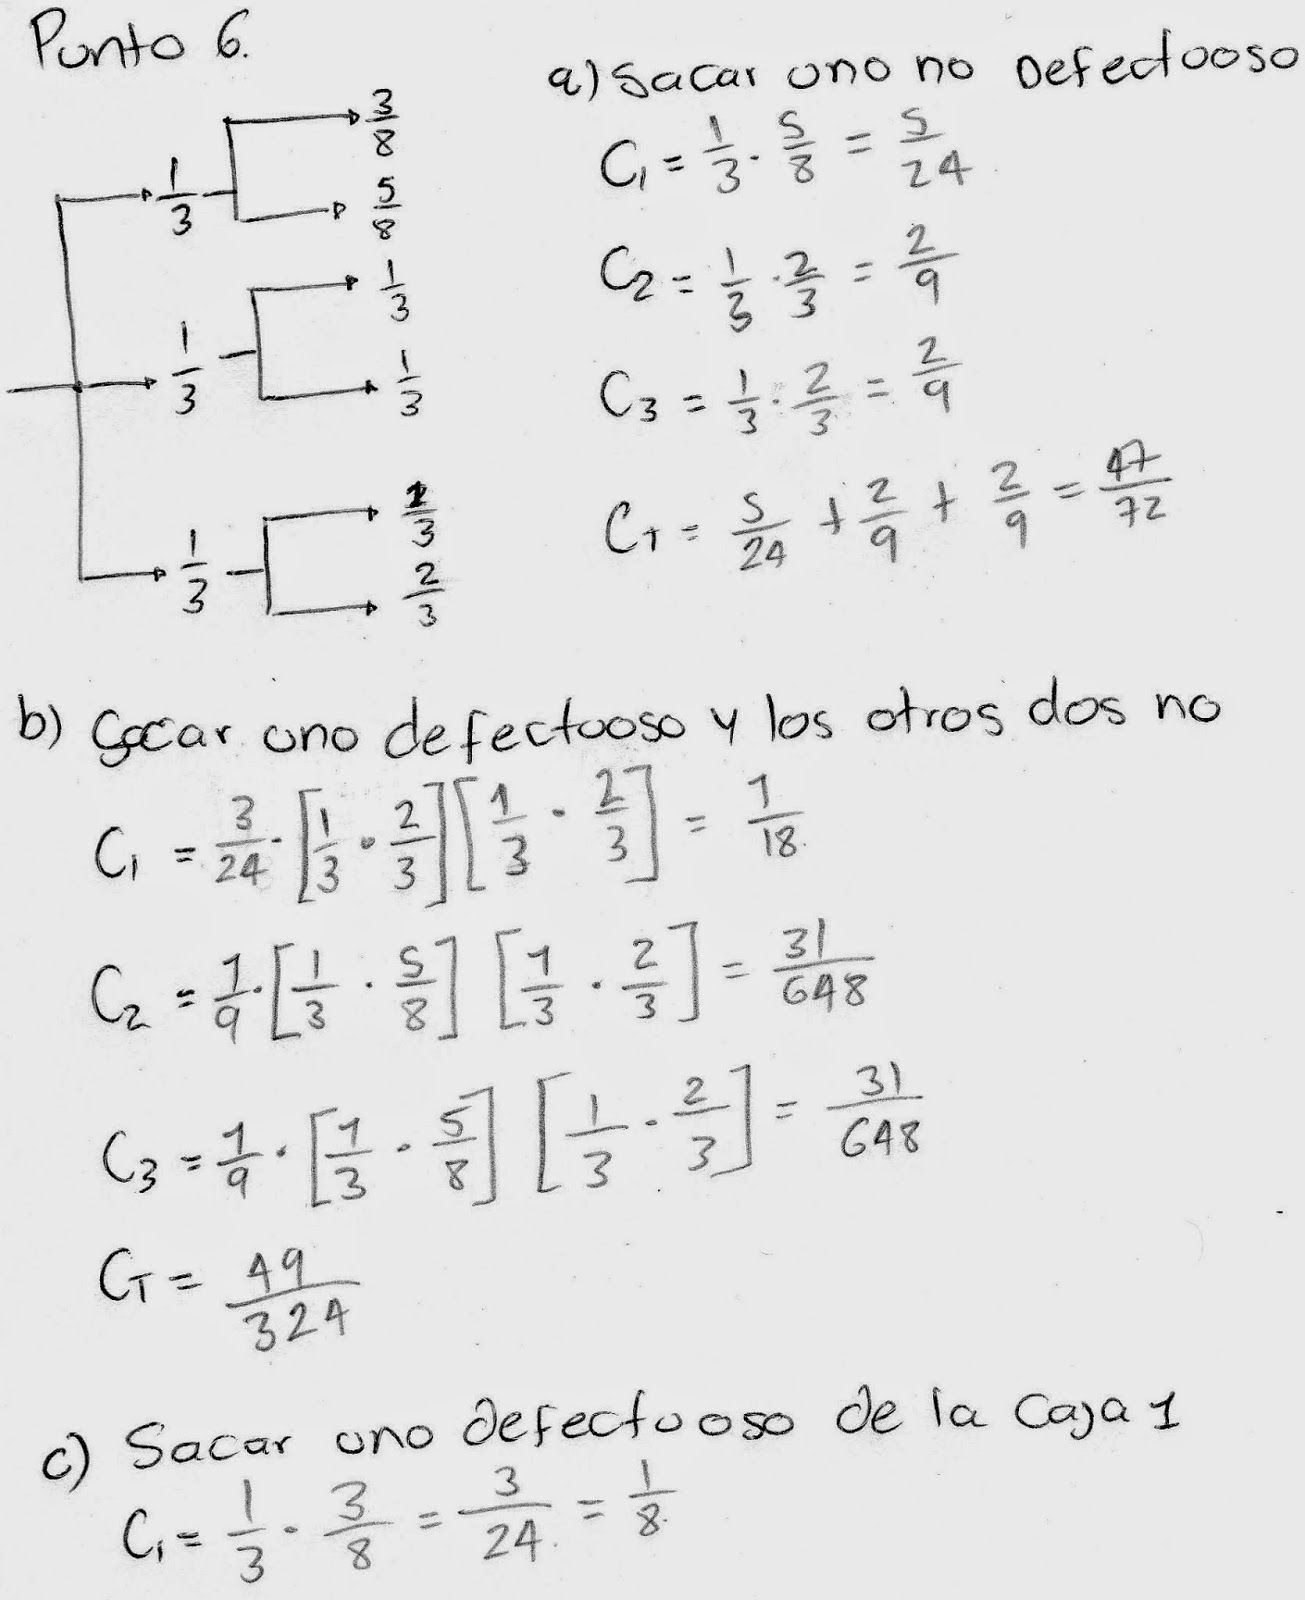 Punto 6.
1/3 3/8
5/8
1/3 1/3
1/3
1/3 1/3
2/3
a) Sacar uno no Defectuoso
C₁ = 1/3 · 5/8 = 5/24
C₂ = 1/3 · 2/3 = 2/9
C₃ = 1/3 · 2/3 = 2/9
C_T = 5/24 + 2/9 + 2/9 = 47/72
b) Sacar uno defectuoso y los otros dos no
C₁ = 3/24 · [1/3 · 2/3] [1/3 · 2/3] = 1/18
C₂ = 1/9 · [1/3 · 5/8] [1/3 · 2/3] = 31/648
C₃ = 1/9 · [1/3 · 5/8] [1/3 · 2/3] = 31/648
C_T = 49/324
c) Sacar uno defectuoso de la Caja 1
C₁ = 1/3 · 3/8 = 3/24 = 1/8